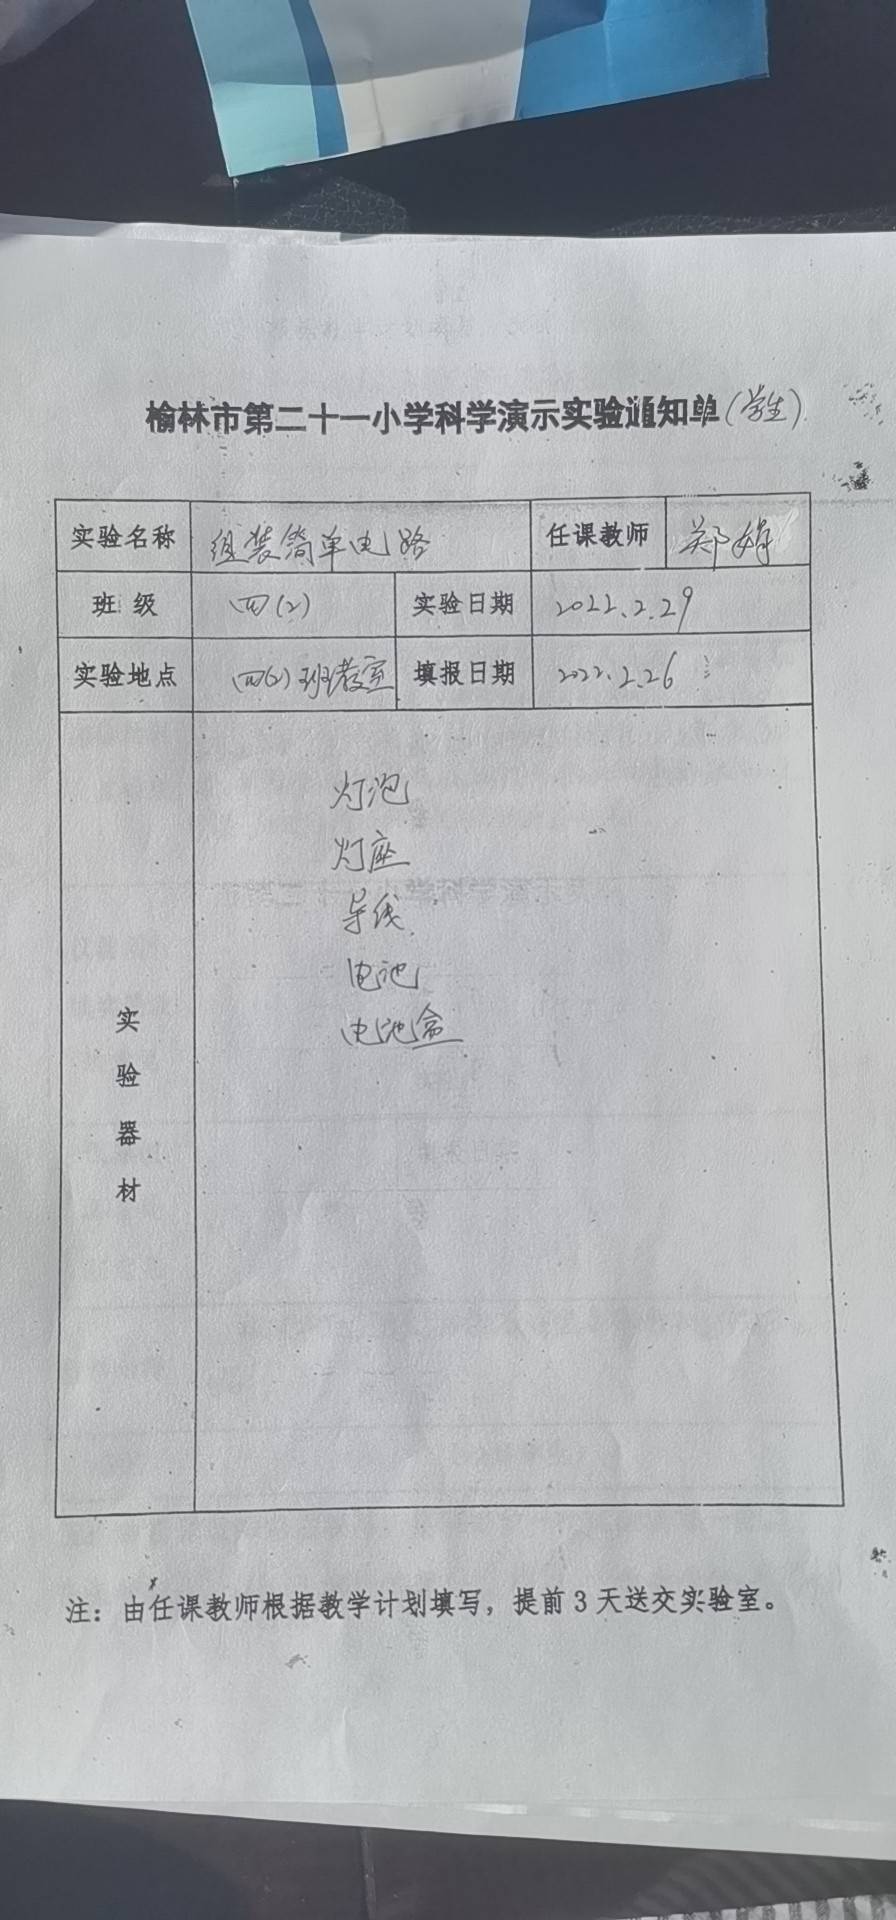 榆林市第二十一小学科学演示实验通知单(学生)
实验名称 组装简单电路 任课教师 郑娟
班级 四(2) 实验日期 2022.2.29
实验地点 四(2)班教室 填报日期 2022.2.26
实验器材
灯泡
灯座
导线
电池
电池盒
注：由任课教师根据教学计划填写，提前3天送交实验室。